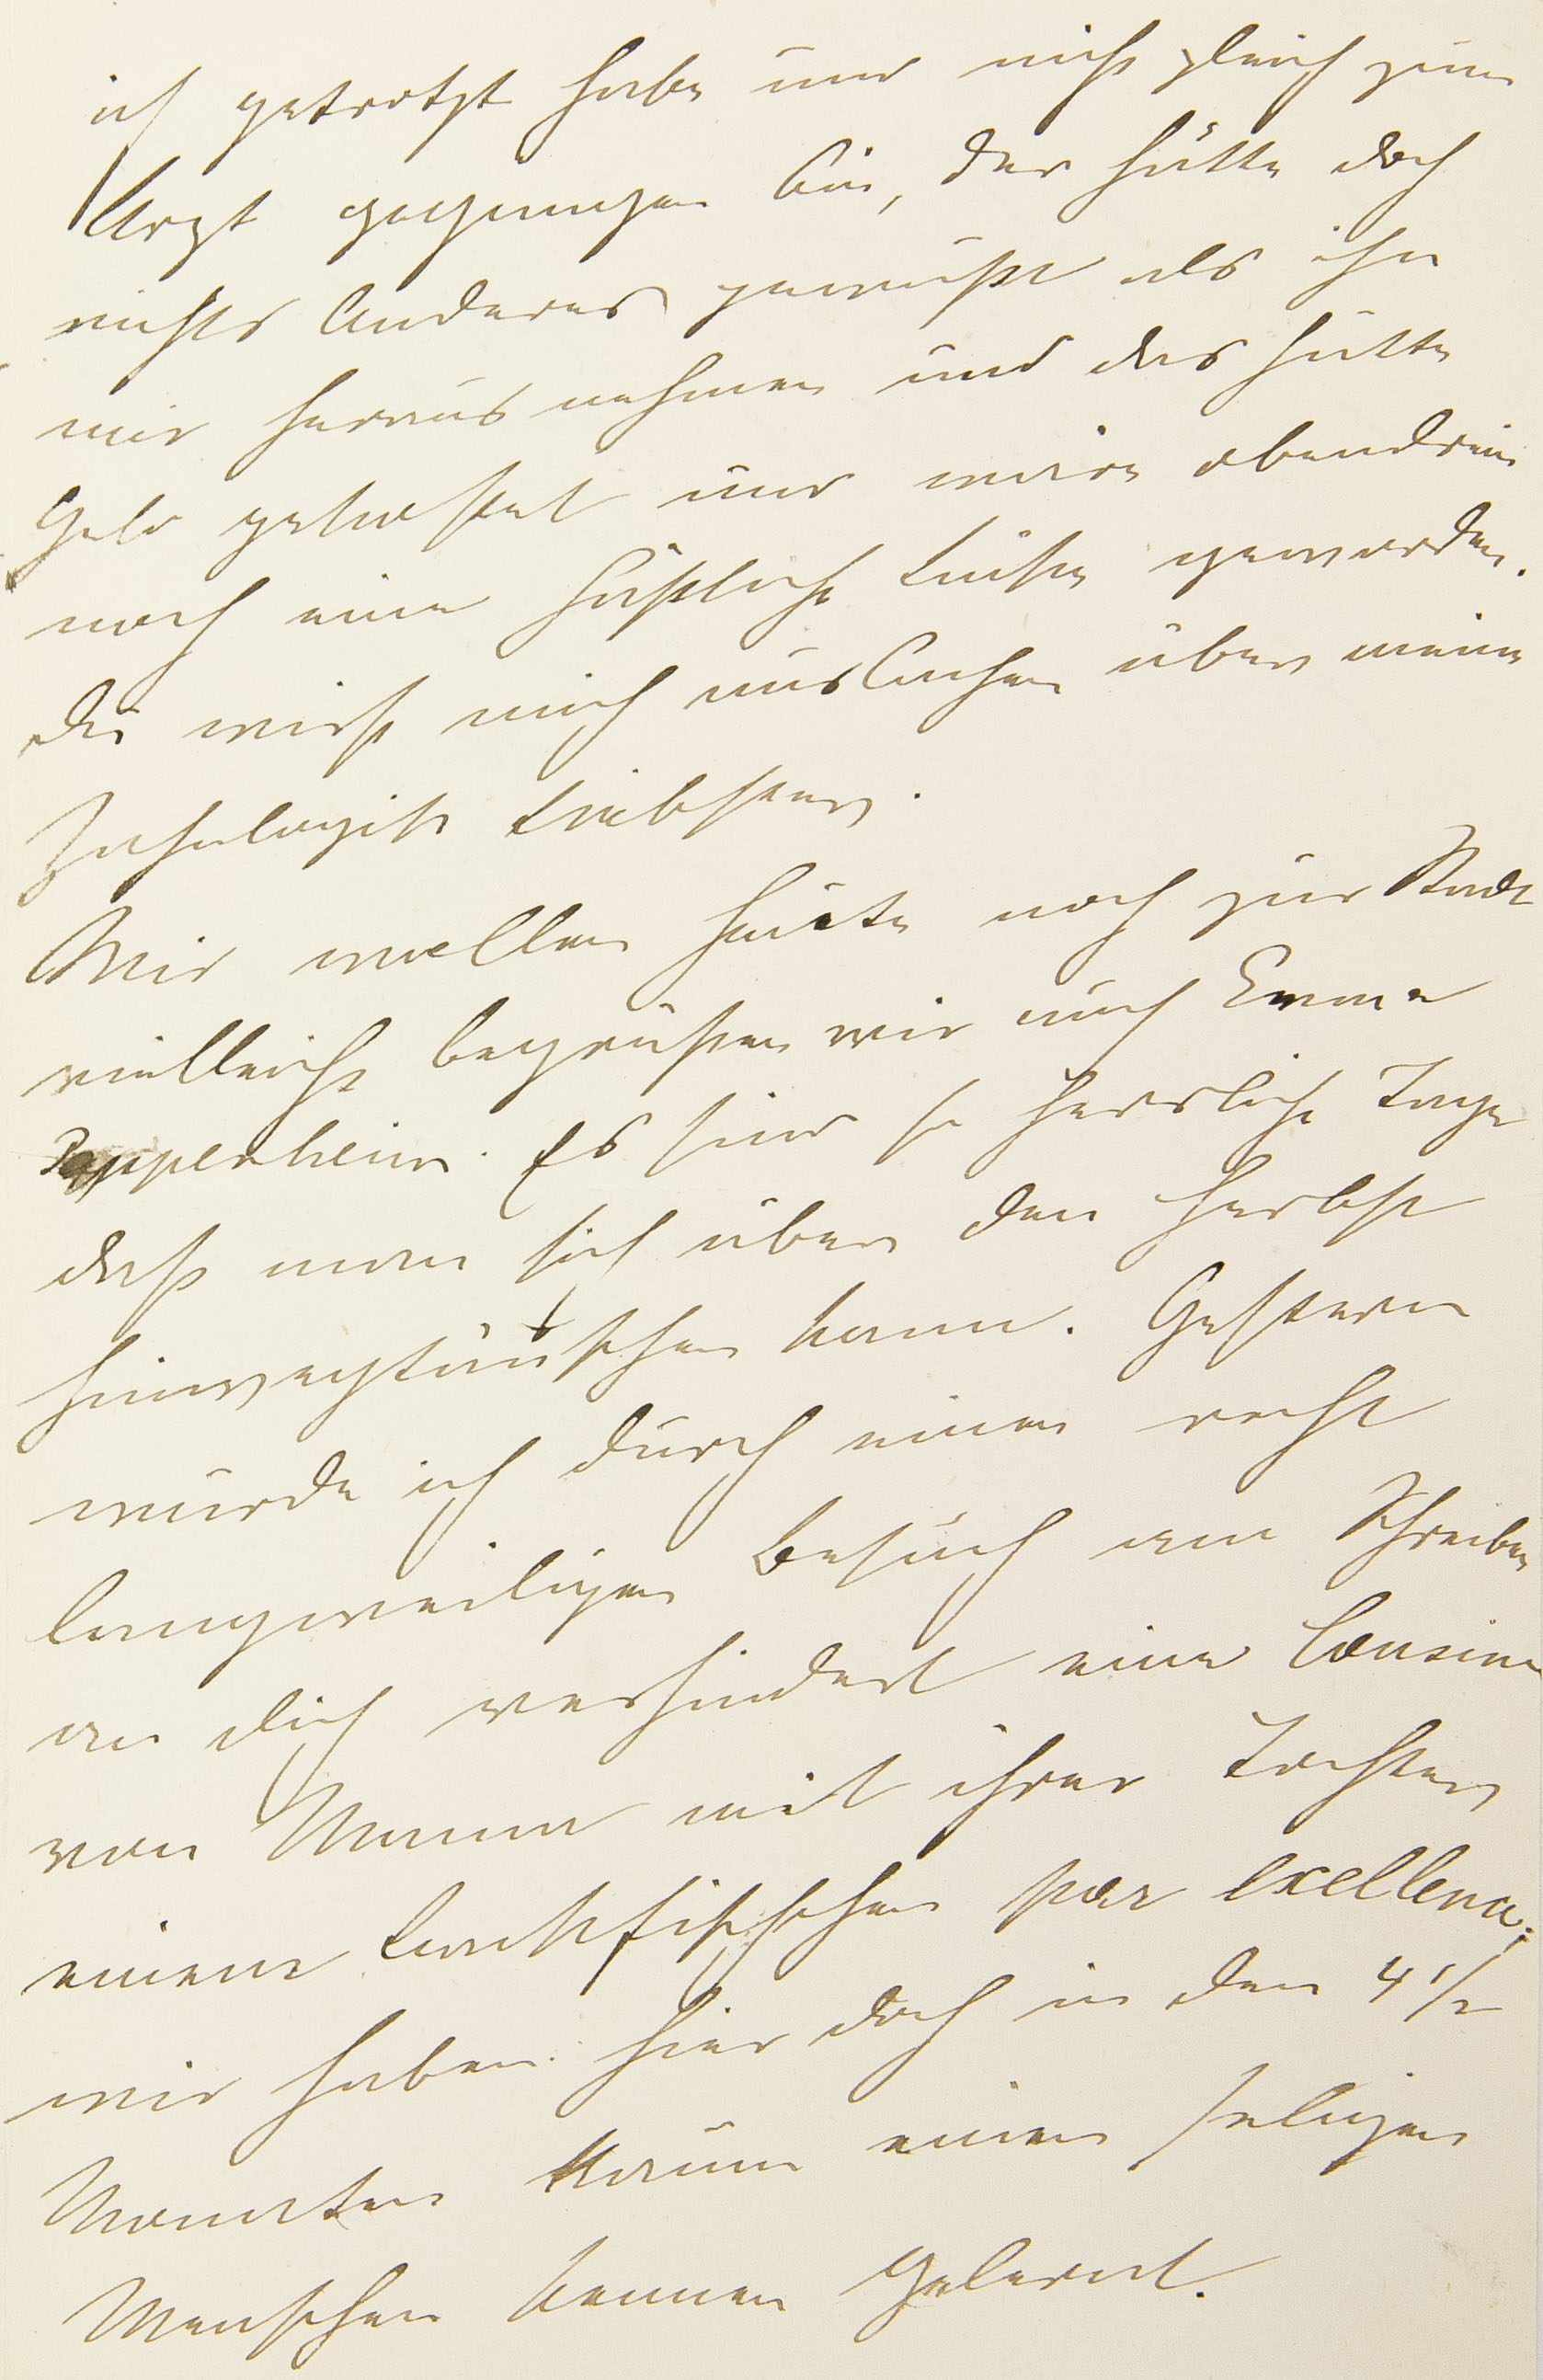 ich getrotzt habe und nicht gleich zum
Arzt gegangen bin, der hätte doch
nichts Anderes gewußt als ihn
mir heraus nehmen und das hätte
Geld gekostet und wäre obendrein
noch eine häßliche Lücke geworden.
Du wirst mich auslachen über meine
Zahnlogik Liebster.
Wir wollen heute noch zur Stadt
vielleicht begrüßen wir auch Emma
Pappenheim. Es sind so herrliche Tage
daß man sich über den Herbst
hinwegtäuschen kann. Gestern
wurde ich durch einen recht
langweiligen Besuch am Schreiben
an dich verhindert eine Cousine
von Mama mit ihrer Tochter
einem Backfischchen par exellence;
wir haben hier doch in den 4 1/2
Monaten kaum einen seligen
Menschen kennen gelernt.